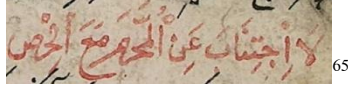 لَا اِجْتِنَابَ عَنِ الْمُحَرَّمِ مَعَ الْحِرْصِ 65